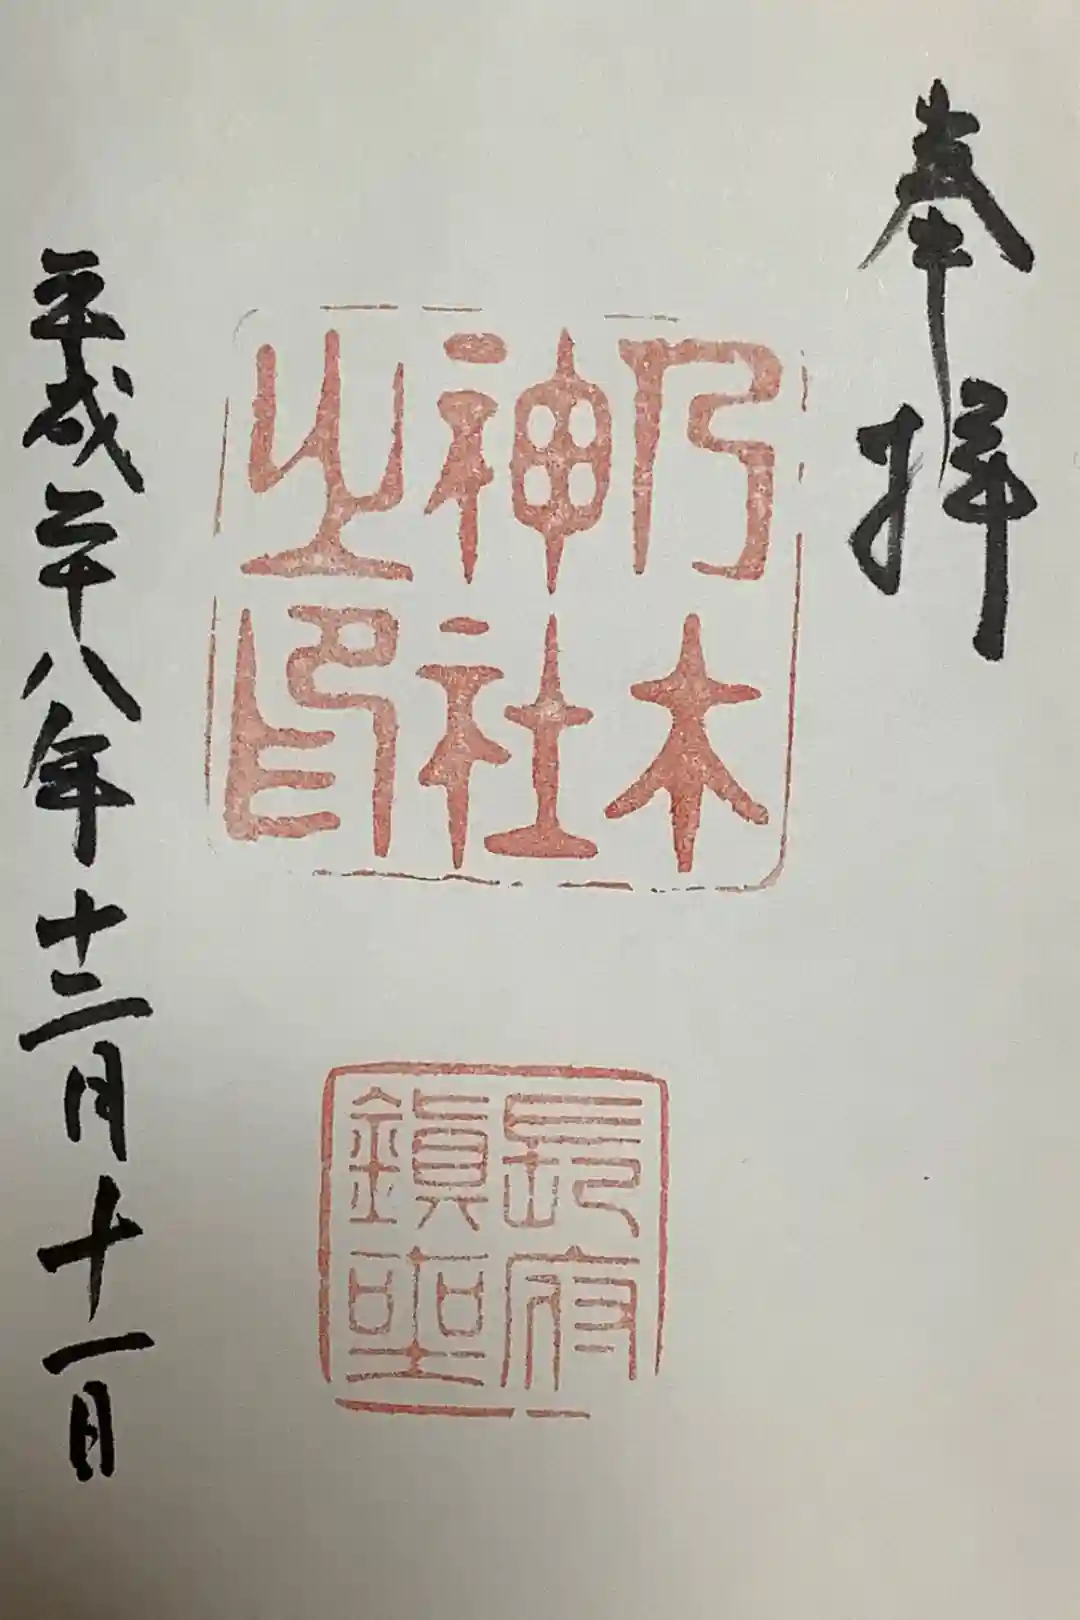 奉拝
乃木
神社
之印
長府
鎮座
平成二十八年十二月十一日